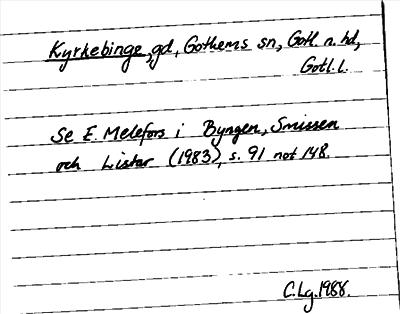 Kyrkebinge, gd, Gothems sn, Gotl. n. hd,
Gotl. l.
Se E. Melefors i Byngen, Smissen
och Listar (1983), s. 91 not 148.
C. Lg. 1988.